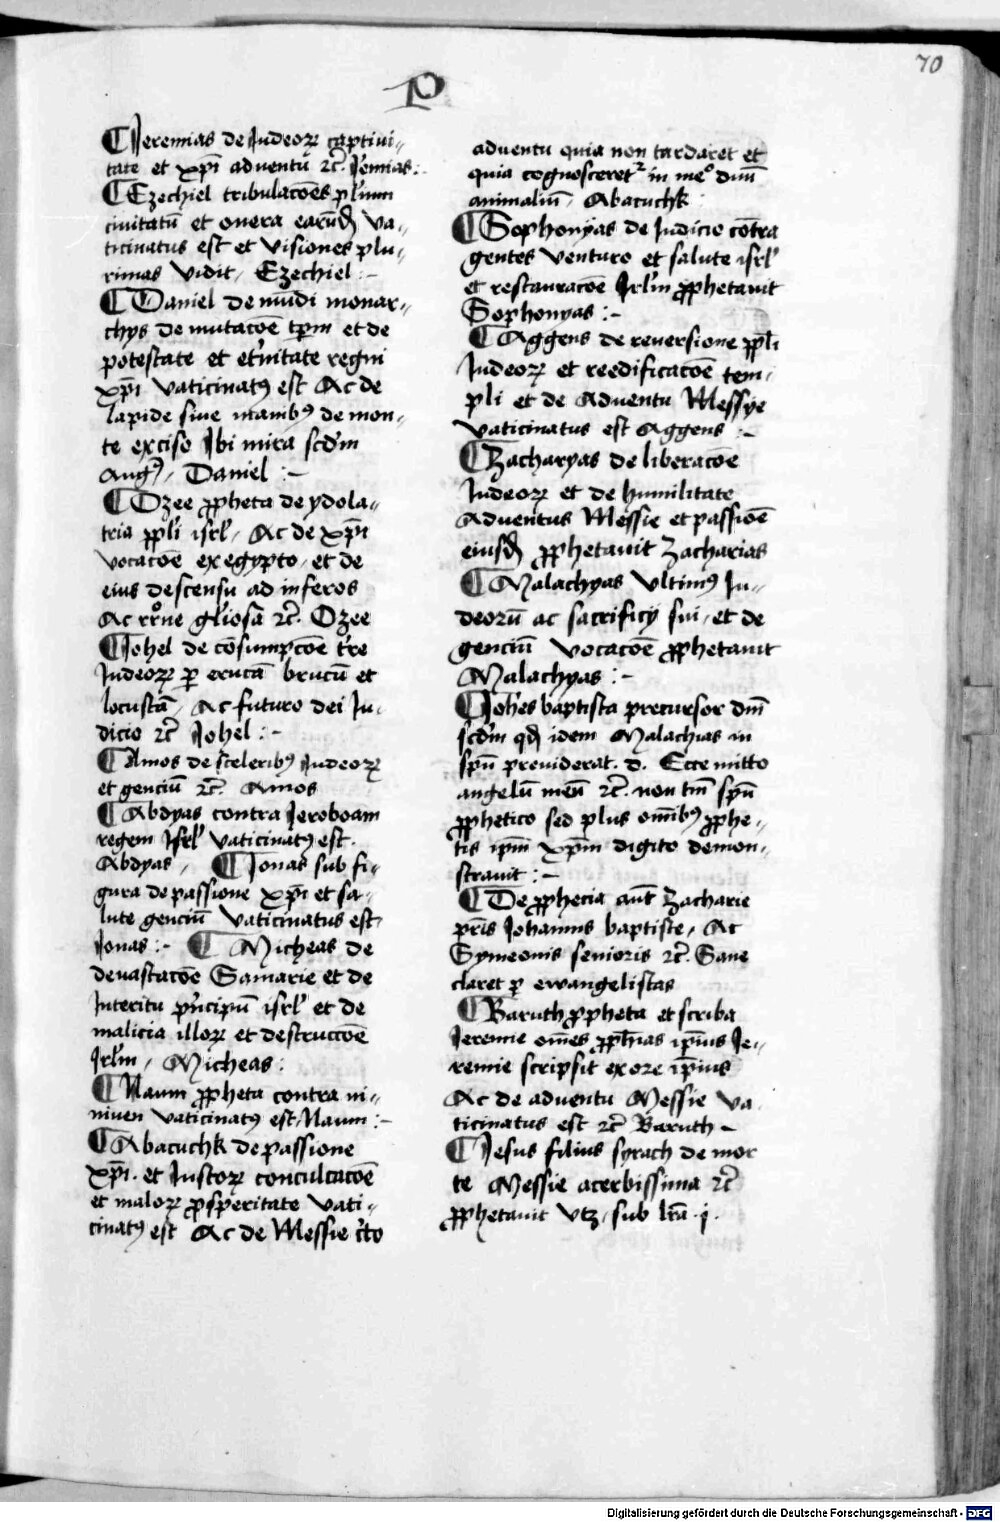 70
P
Jeremias de Judeoꝝ captivi-
tate et xp̄i adventū ⁊c̄. Jemias:
Ezechiel tribulacōēs plīum
civitatū et onera earūdē va-
ticinatus est et visiones plu-
rimas vidit, Ezechiel:-
Daniel de mūdi monar-
chys de mutacōe tp̄m et de
potestate et et'nitate regni
xp̄i vaticinatꝰ est Ac de
lapide sive manibꝰ de mon-
te exciso Jbi mira scd'm
Augꝰ, Daniel:-
Ozee ꝓpheta de ydola-
tria ppl'i isrl', Ac de xp̄i
vocacōe ex egypto, et de
eius descensu ad inferos
Ac rr̄one gl'iosa ⁊c̄. Ozee
Johel de cōsumpcōe t're
Judeoꝝ ꝑ erucā brucū et
locustā, Ac futuro dei Ju-
dicio ⁊c̄ Johel:-
Amos de sceleribꝰ Judeoꝝ
et genciū ⁊c̄. Amos
Abdyas contra Jeroboam
regem Jsrl' vaticinatꝰ est.
Abdyas, Jonas sub fi-
gura de passione xp̄i et sa-
lute genciū vaticinatus est
Jonas:- Micheas de
devastacōe Samarie et de
Interitu p'ncipū isrl' et de
malicia illoꝝ et destruccōe
Jrl'm, Micheas:
Naum ꝓpheta contra ni-
niven vaticinatꝰ est, Naum:-
Abacuchk de passione
xp̄i. et Justoꝝ conculcacōe
et maloꝝ ꝓsperitate vati-
cinatꝰ est Ac de Messie c'to
adventu quia non tardaret et
quia cognosceret' in meº duū
animaliū, Abacuchk:
Sophonyas de Judicio cōtra
gentes venturo et salute isrl'
et restauracōe Jrl'm ꝓphetavit
Sophonyas:-
Aggeus de reversione ppl'i
Judeoꝝ et reedificacōe tem-
pli et de Adventu Messye
vaticinatus est Aggeus:-
Zacharyas de liberacōe
Judeoꝝ et de humilitate
Adventus Messie et passiōe
eiusdē ꝓphetavit Zacharias
Malachyas ultimꝰ Ju-
deorū ac sacrificij sui, et de
genciū vocacōe ꝓphetavit
Malachyas:-
Joh'es baptista precursor dm̄
scd'm qd̄ idem Malachias in
spū previderat. d. Ecce mitto
angelū meū ⁊c̄. non tm̄ spū
ꝓphetico sed plus om̄ibꝰ ꝓphe-
tis ip̄m xp̄m digito demon-
stravit:-
De ꝓphecia aut̄ Zacharie
pr̄is Johannis baptiste, Ac
Symeonis senioris ⁊c̄. Sane
claret ꝑ ewangelistas
Baruth ꝓpheta et scriba
Jeremie om̄es ꝓph'ias ip̄ius Je-
remie scripsit ex ore ip̄ius
Ac de adventu Messie va-
ticinatus est ⁊c̄ Baruth-
Jesus filius syrach de mor
te Messie acerbissima ⁊c̄
ꝓphetavit vtz, sub lr̄a .j.
Digitalisierung gefördert durch die Deutsche Forschungsgemeinschaft - DFG